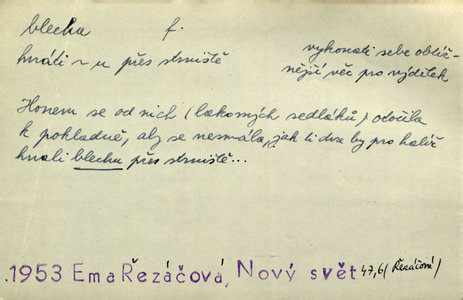 blecha f.
hnáti ~u přes strniště
vykonati sebe obtíž-
nější věc pro výdělek
Honem se od nich (lakomých sedláků) otočila
k pokladně, aby se nesmála, jak ti dva by pro haléř
hnali blechu přes strniště...
1953 Ema Řezáčová, Nový svět 47,6/ (Řezáčová)